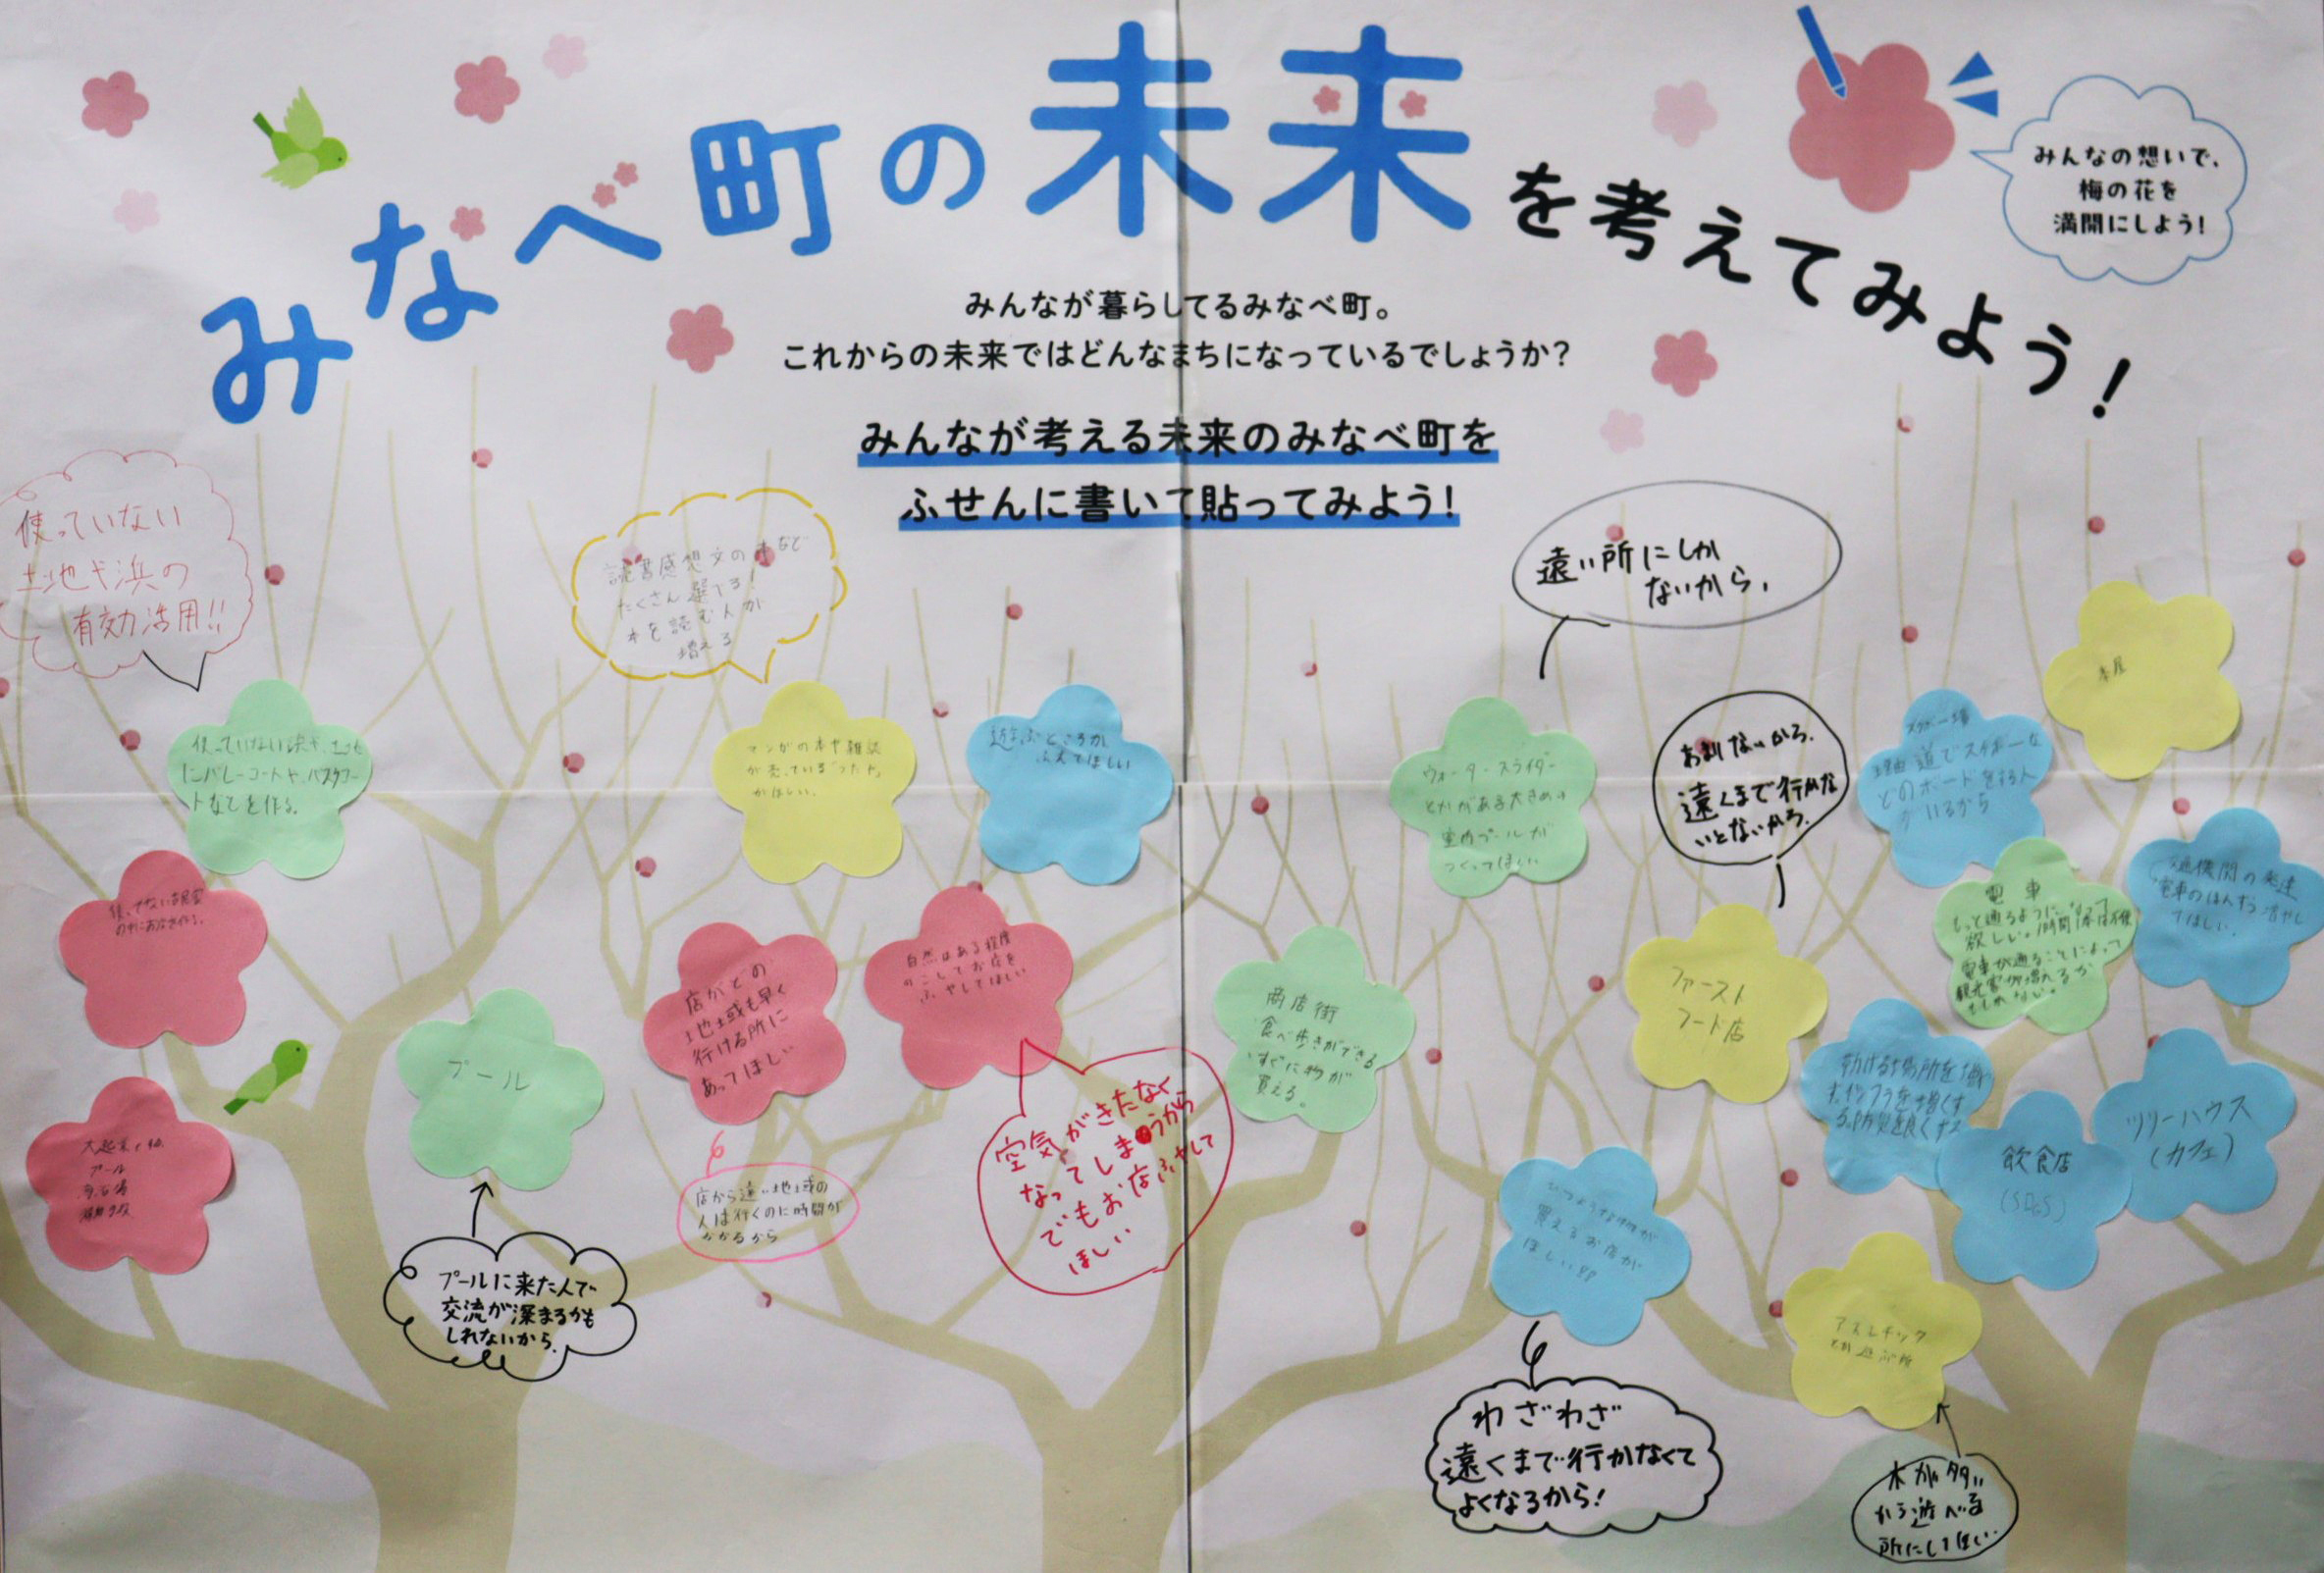 みなべ町の未来を考えてみよう!
みんなの想いで、
梅の花を
満開にしよう!
みんなが暮らしてるみなべ町。
これからの未来ではどんなまちになっているでしょうか?
みんなが考える未来のみなべ町を
ふせんに書いて貼ってみよう!
使っていない
土地や浜の
有効活用!!
使っていない浜や、土地
にバレーコートや、バスケコー
トなどを作る。
読書感想文の本など
たくさん選べる!
本を読む人が
増える
マンガの本や雑誌
が売っている
がほしい。
遊ぶところが
ふえてほしい
遠い所にしか
ないから、
ウォータースライダー
とかがある大きめの
室内プールが
つくってほしい
あまりないから、
遠くまで行かな
いとないから、
ファースト
フード店
スケボー場
理由 道でスケボーな
どのボードをする人
がいるから
本屋
交通機関の発達
電車のほんすう増やし
てほしい。
電車
もっと通るようになって
欲しい。1時間1本は不便
電車が通ることによって
観光客が増えるか
もしれない。
使ってない古民家
の中にお店を作る。
プール
プールに来た人で
交流が深まるかも
しれないから、
プール
店がどの
地域も早く
行ける所に
あってほしい
店から遠い地域の
人は行くのに時間が
かかるから
自然はある程度
のこしてお店を
ふやしてほしい
空気がきたなく
なってしまうから
でもお店ふやして
ほしい
商店街
食べ歩きができる
すぐに物が
買える。
ひつような物が
買えるお店が
ほしい!!
わざわざ
遠くまで行かなくて
よくなるから!
飲食店
(SDGs)
ツリーハウス
(カフェ)
アスレチック
とか遊ぶ所
木が多い
から遊べる
所にしてほしい